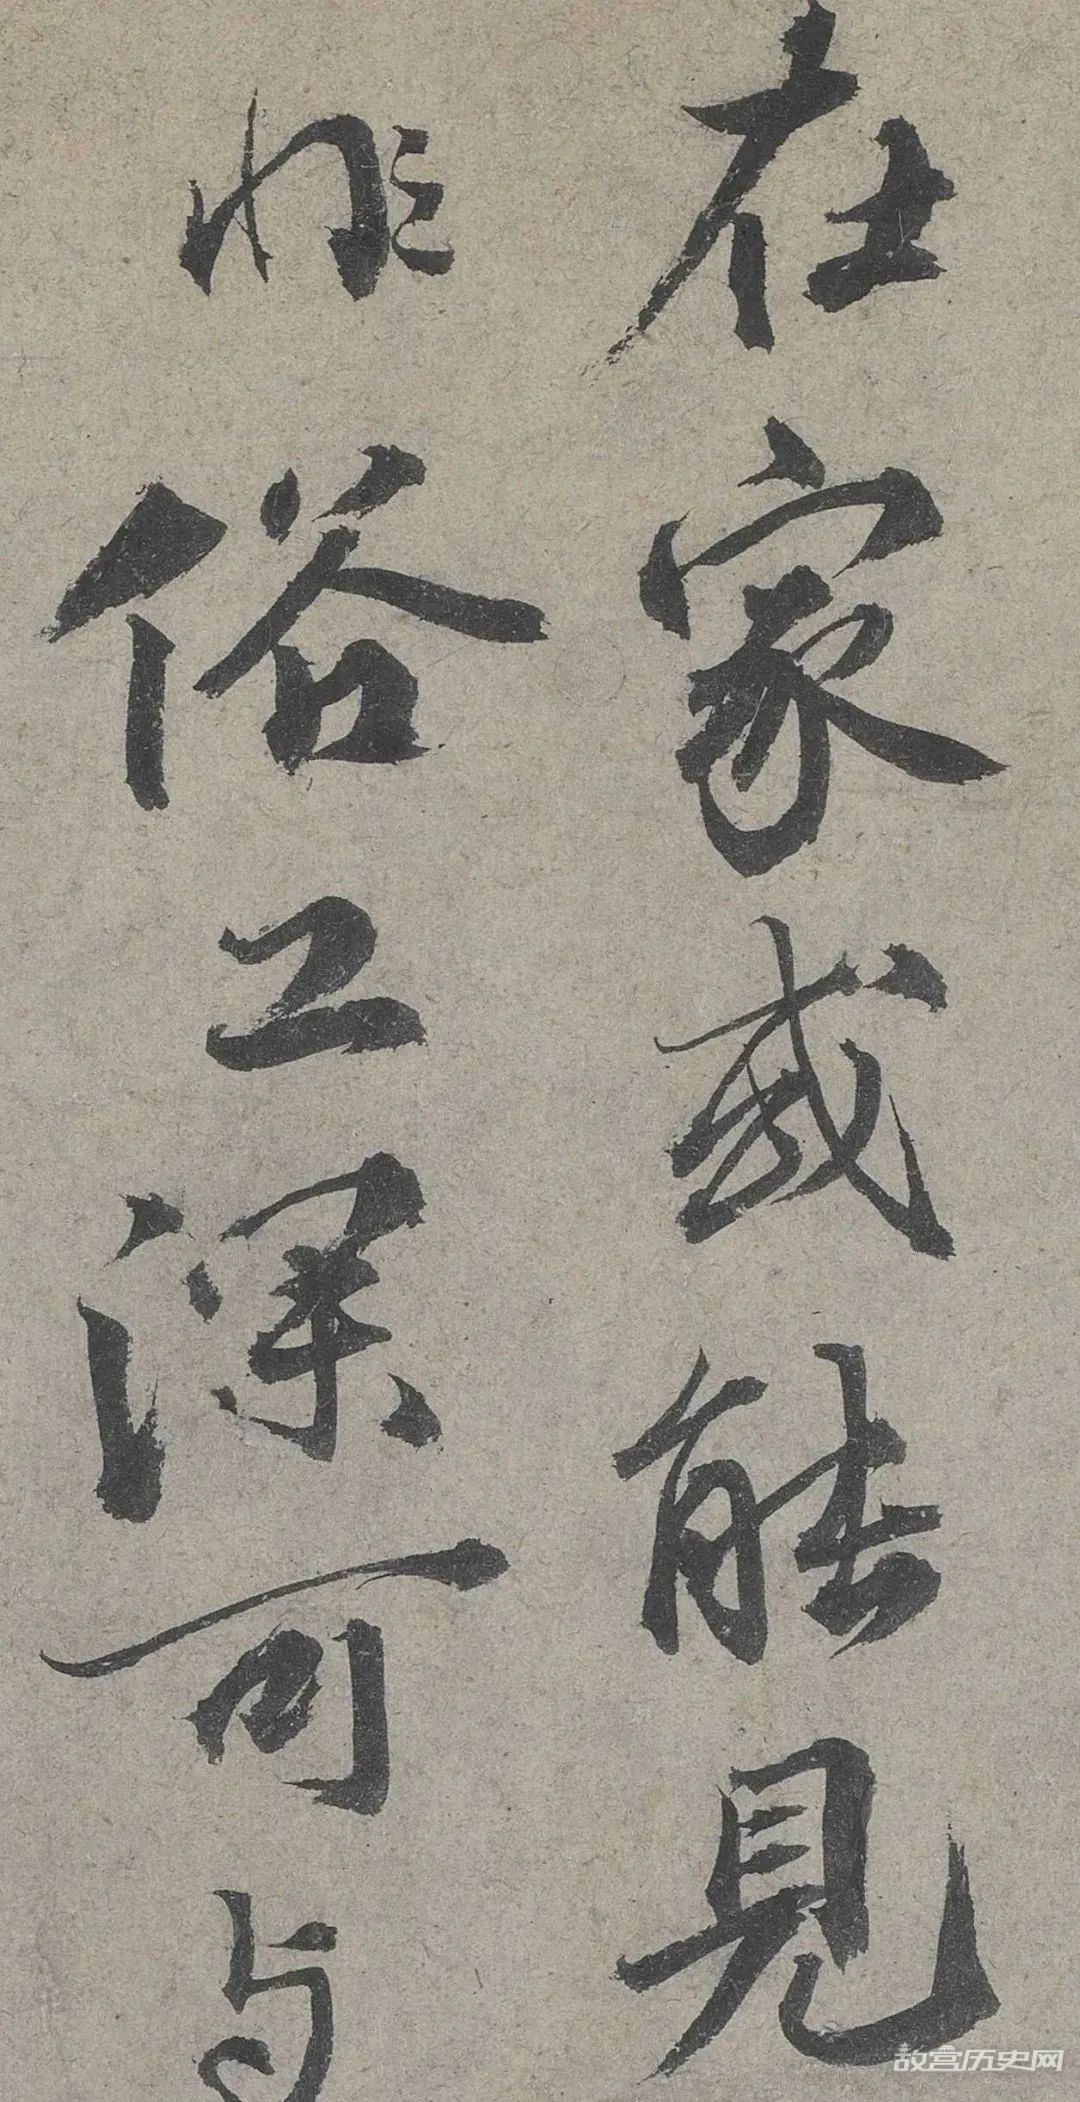 在家或能見
非俗工深可与
故宫历史网